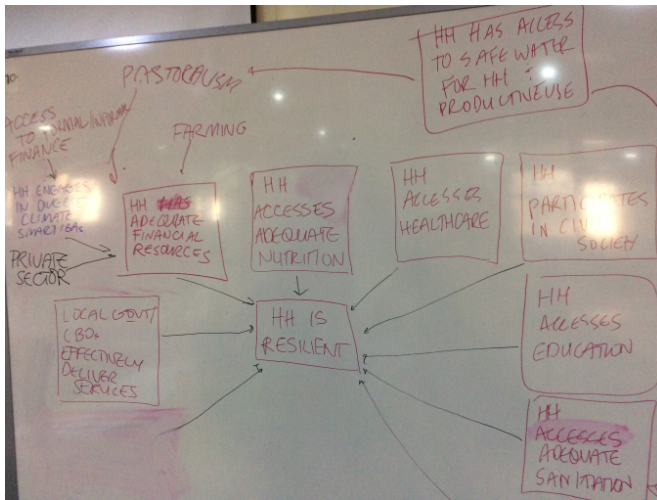 HH HAS ACCESS
TO SAFE WATER
FOR HH +
PRODUCTIVE USE
PASTORALISM
ACCESS
TO FORMAL/INFORMAL
FINANCE
FARMING
HH ENGAGES
IN DIVERSE
CLIMATE
SMART IGAs
PRIVATE
SECTOR
HH HAS
ADEQUATE
FINANCIAL
RESOURCES
HH
ACCESSES
ADEQUATE
NUTRITION
HH
ACCESSES
HEALTHCARE
HH
PARTICIPATES
IN CIVIL
SOCIETY
LOCAL GOVT/
CBOs
EFFECTIVELY
DELIVER
SERVICES
HH IS
RESILIENT
HH
ACCESSES
EDUCATION
HH
ACCESSES
ADEQUATE
SANITATION